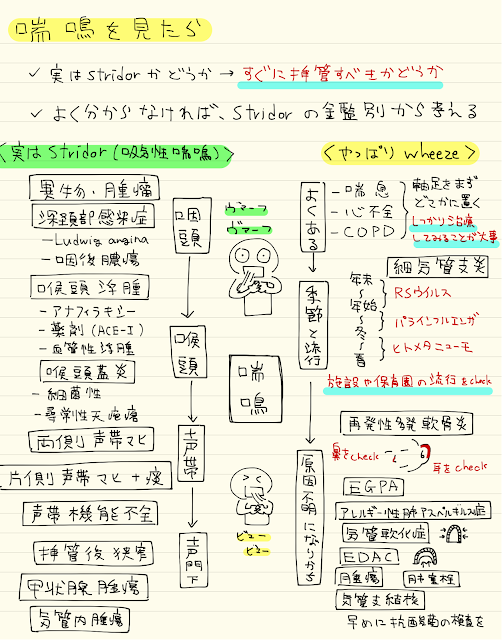 喘鳴を見たら
✓ 実はstridorかどうか → すぐに挿管すべきかどうか
✓ よく分からなければ、stridorの全鑑別から考える
<実はstridor(吸気性喘鳴)>
異物・腫瘤
深頸部感染症
- Ludwig angina
- 咽後膿瘍
喉頭浮腫
- アナフィラキシー
- 薬剤(ACE-I)
- 血管性浮腫
喉頭蓋炎
- 細菌性
- 尋常性天疱瘡
両側声帯マヒ
片側声帯マヒ+痰
声帯機能不全
挿管後狭窄
甲状腺腫瘤
気管内腫瘤
咽頭
喉頭
声帯
声門下
ヴマーフ
ヴマーフ
喘鳴
ビュー
ビュー
<やっぱりwheeze>
よくある
- 喘息
- 心不全
- COPD
軸足をまず
どこかに置く
しっかり治療
してみることが大事
季節と流行
細気管支炎
年末~年始~冬~春
RSウイルス
パラインフルエンザ
ヒトメタニューモ
施設や保育園の流行をcheck
原因不明になりがち
再発性多発軟骨炎
鼻をcheck
耳をcheck
EGPA
アレルギー性肺アスペルギルス症
気管軟化症
EDAC
腫瘍
肺塞栓
気管支結核
早めに抗酸菌の検査を